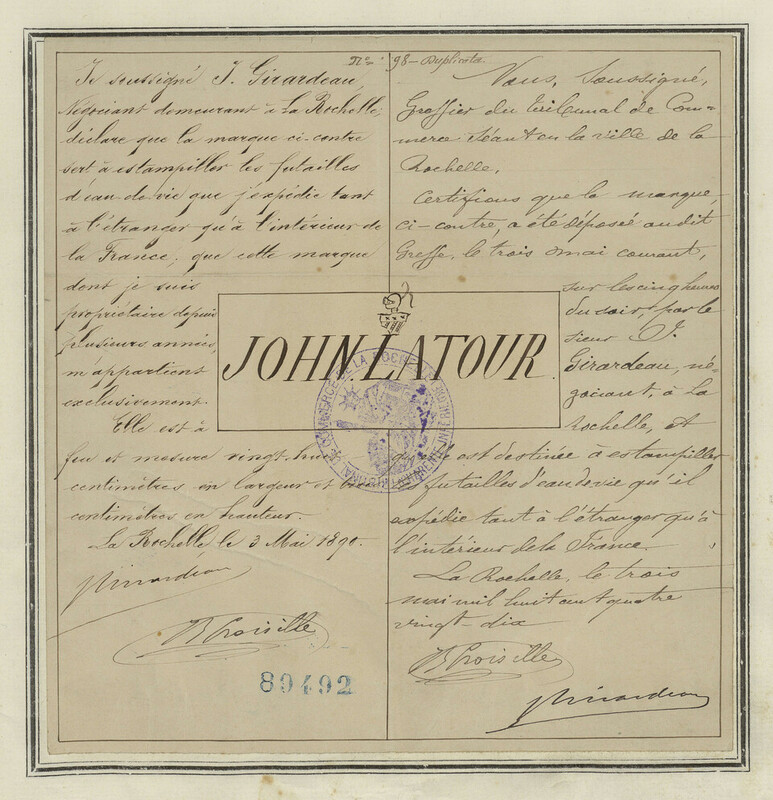 No 98 - Duplicata
Je soussigné J. Girardeau,
Négociant demeurant à La Rochelle,
déclare que la marque ci-contre
sert à estampiller les futailles
d'eau-de-vie que j'expédie tant
à l'étranger qu'à l'intérieur de
la France; que cette marque
dont je suis
propriétaire depuis
plusieurs années,
m'appartient
exclusivement.
Elle est à
feu et mesure vingt-huit
centimètres en largeur et
centimètres en hauteur.
La Rochelle le 3 Mai 1890.
J Girardeau
B Croisille
89492
JOHN.LATOUR.
Nous, Soussigné,
Greffier du tribunal de Com-
merce séant en la ville de la
Rochelle,
Certifions que la marque,
ci-contre, a été déposé audit
Greffe, le trois mai courant,
sur les cinq heures
du soir, par le
sieur J.
Girardeau, né-
gociant, à La
Rochelle, et
est destinée à estampiller
les futailles d'eau de vie qu'il
expédie tant à l'étranger qu'à
l'intérieur de la France.
La Rochelle, le trois
mai mil huit cent quatre
vingt-dix
B Croisille
J Girardeau